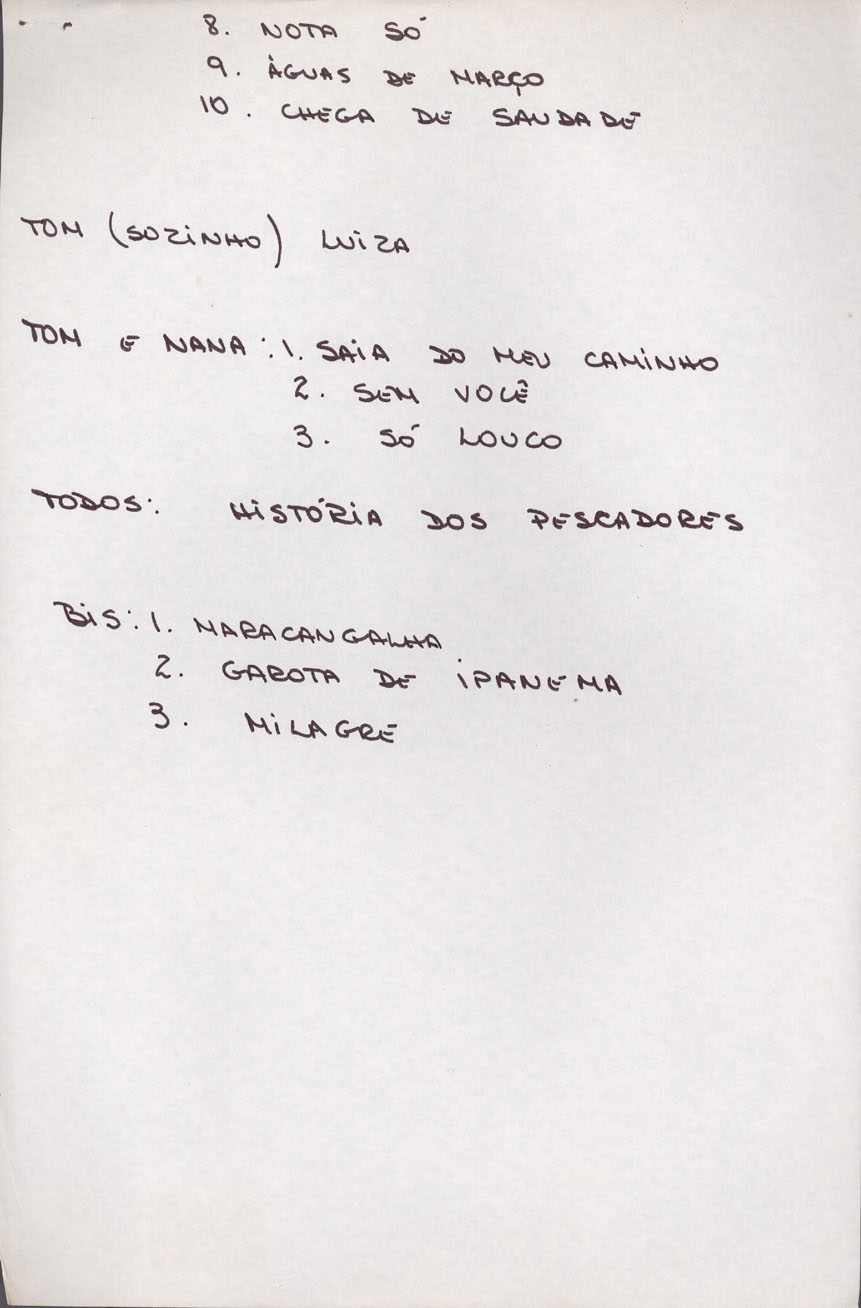 8. NOTA SÓ
9. ÁGUAS DE MARÇO
10. CHEGA DE SAUDADE
TOM (SOZINHO) LUIZA
TOM E NANA: 1. SAIA DO MEU CAMINHO
2. SEM VOCÊ
3. SÓ LOUCO
TODOS: HISTÓRIA DOS PESCADORES
BIS: 1. MARACANGALHA
2. GAROTA DE IPANEMA
3. MILAGRE